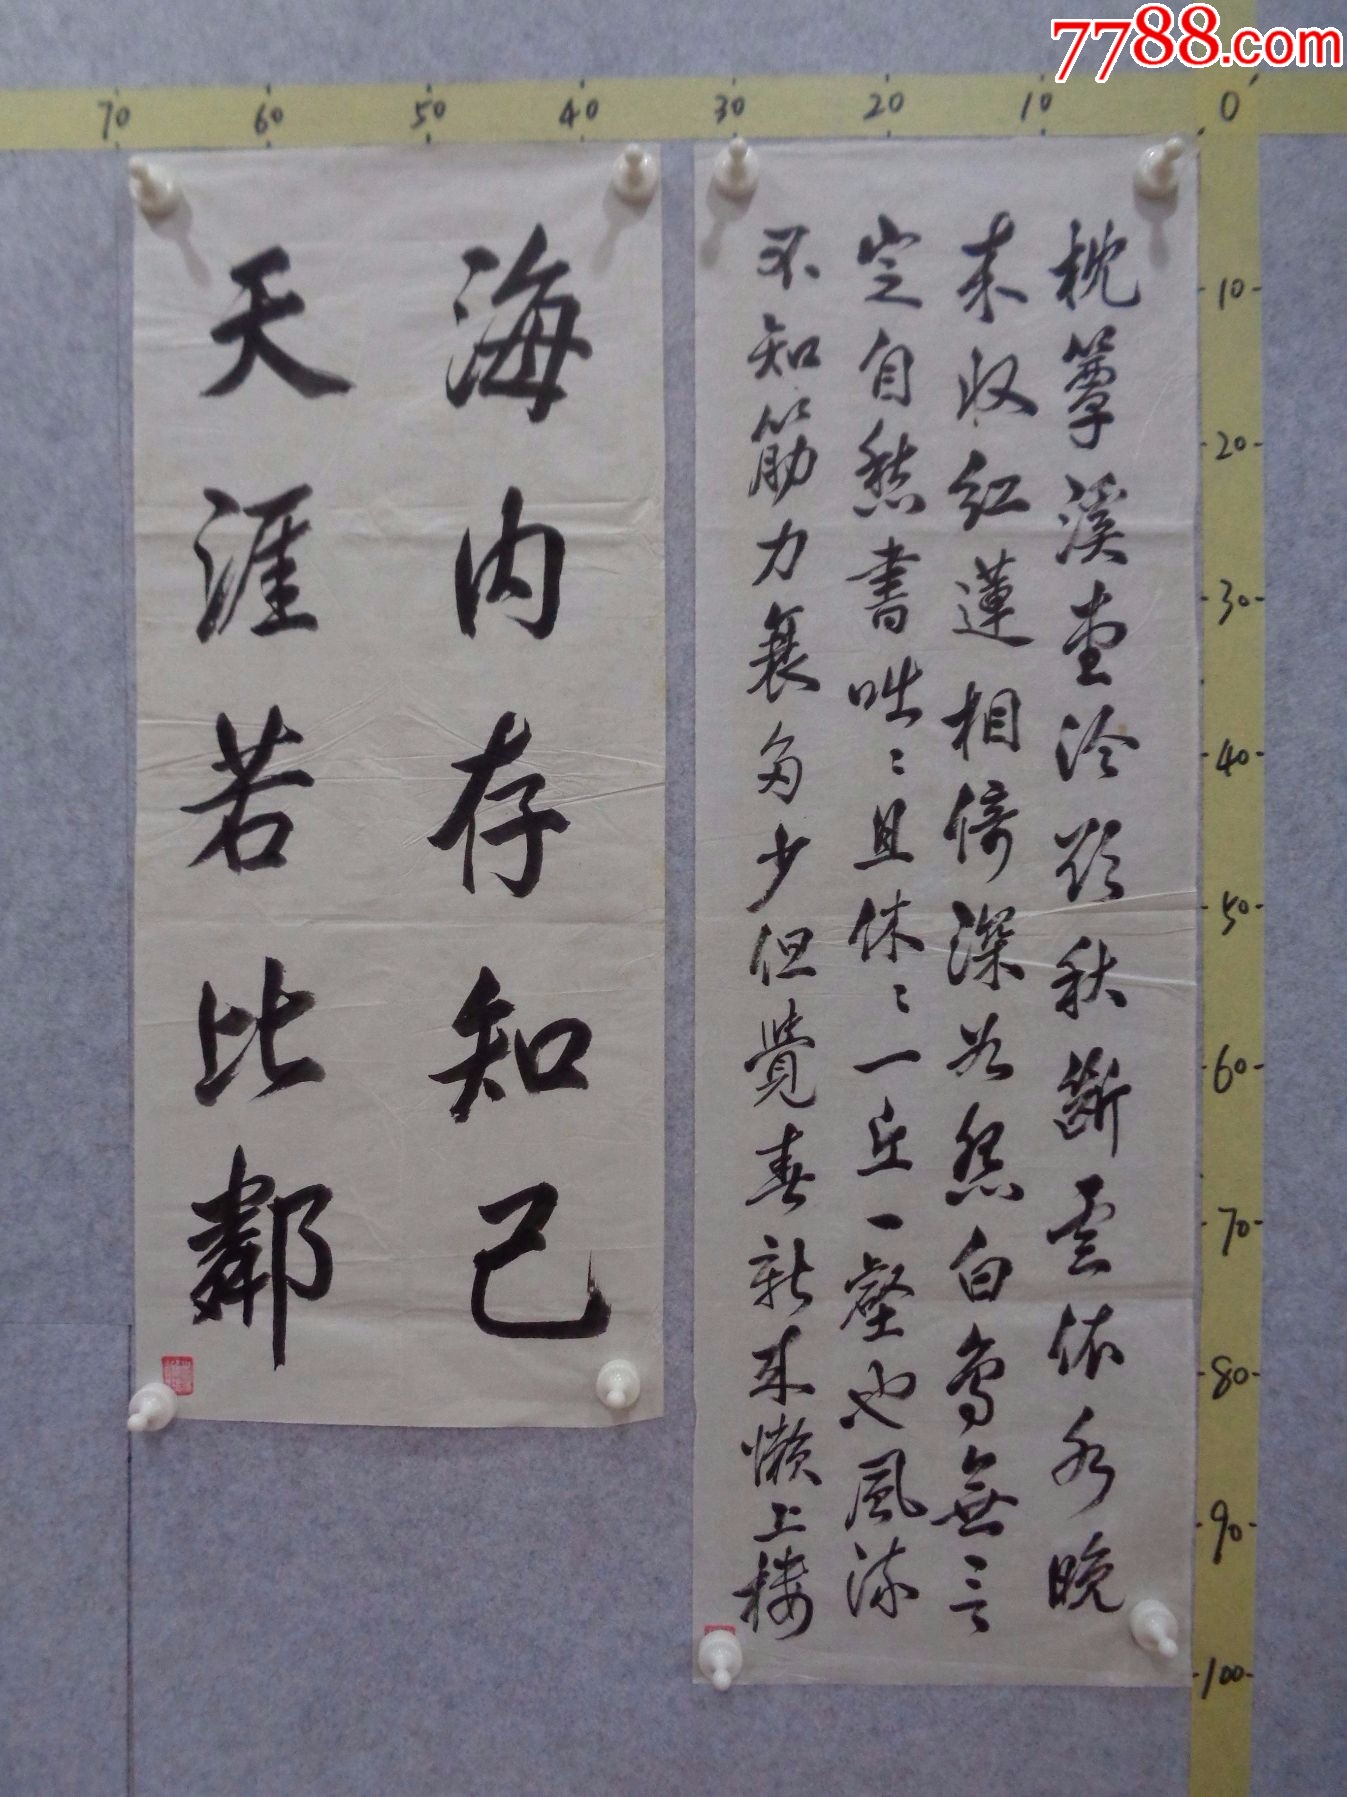 7788.com
70 60 50 40 30 20 10 0
10
20
30
40
50
60
70
80
90
100
枕簟溪堂冷欲秋斷雲依水晚
来收紅蓮相倚深如怨白鳥無言
定自愁書咄〻且休〻一丘一壑也風流
不知筋力衰多少但覺春新来懶上楼
海内存知己
天涯若比鄰